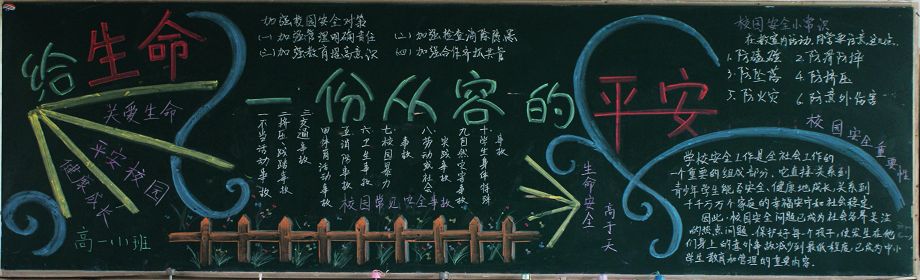 给生命
一份从容的
平安
加强校园安全对策
(一)加强管理明确责任
(二)加强教育提高意识
(三)加强检查消除隐患
(四)加强合作齐抓共管
关爱生命
平安校园
健康成长
高一小班
一不当活动事故
二挤压践踏事故
三交通事故
四体育活动事故
五消防事故
六卫生事故
七校园暴力
事故
八劳动或社会
实践事故
九自然灾害事故
十学生事件特殊
事故
校园常见安全事故
生命安全
高于天
校园安全小常识
1. 防碰撞
2. 防滑防摔
3. 防坠落
5. 防火灾
6. 防意外伤害
校园安全重要性
学校安全工作是全社会工作的
一个重要的组成部分。它直接关系到
青少年学生能否安全、健康地成长,关系到
千千万万个家庭的幸福安宁和社会稳定。
因此,校园安全问题已成为社会各界关注
的热点问题。保护好每个孩子,使发生在他
们身上的意外事故减少到最低程度,已成为中小
学生教育和管理的重要内容。